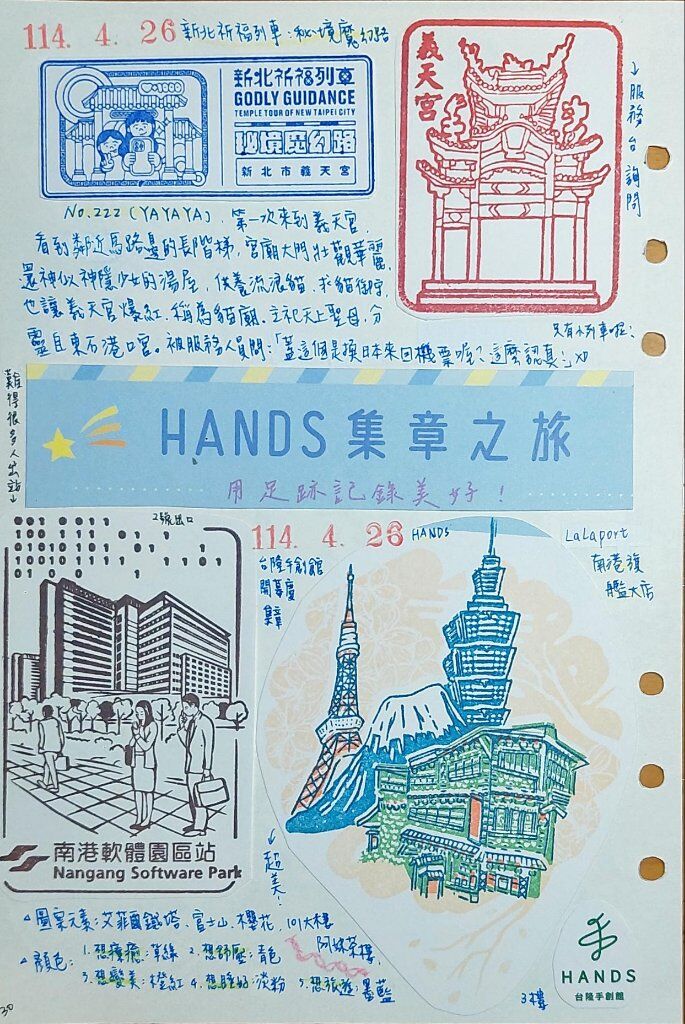 114. 4. 26 新北祈福列車：秘境魔幻路
新北祈福列車
GODLY GUIDANCE
TEMPLE TOUR OF NEW TAIPEI CITY
秘境魔幻路
新北市義天宮
義天宮
↓服務台詢問
No.222 (YAYAYA), 第一次來到義天宮,
看到鄰近馬路邊的長階梯, 宮廟大門壯觀華麗,
還神似神隱少女的湯屋, 供養流浪貓, 求貓御守,
也讓義天宮爆紅, 稱為貓廟. 主祀天上聖母, 分
靈自東石港口宮。被服務人員問:「蓋這個是換日本來回機票呢? 這麼認真」xD
難得很多人出站↓
HANDS集章之旅
用足跡記錄美好！
2號出口
南港軟體園區站
Nangang Software Park
114. 4. 26
HANDS
LaLaport
南港旗
艦大店
台隆手創館
開幕慶
集章
↓超美!
圖案元素:艾菲爾鐵塔、富士山、櫻花、101大樓
阿妹茶樓
顏色: 1.想療癒:草綠 2.想舒壓:青色
3.想變美:橙紅 4.想睡好:淡粉 5.想旅遊:墨藍
3樓
HANDS
台隆手創館
30